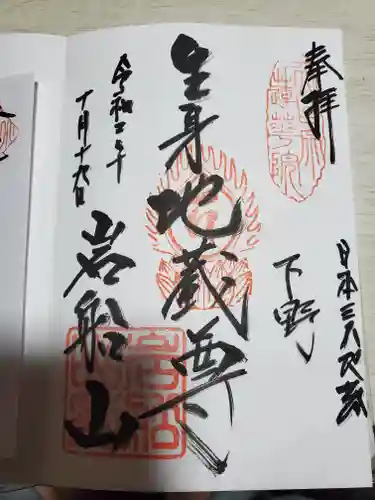 奉拝
日本三大地蔵
下野
生身地蔵尊
岩船山
令和二年
十月十九日
蓮華院